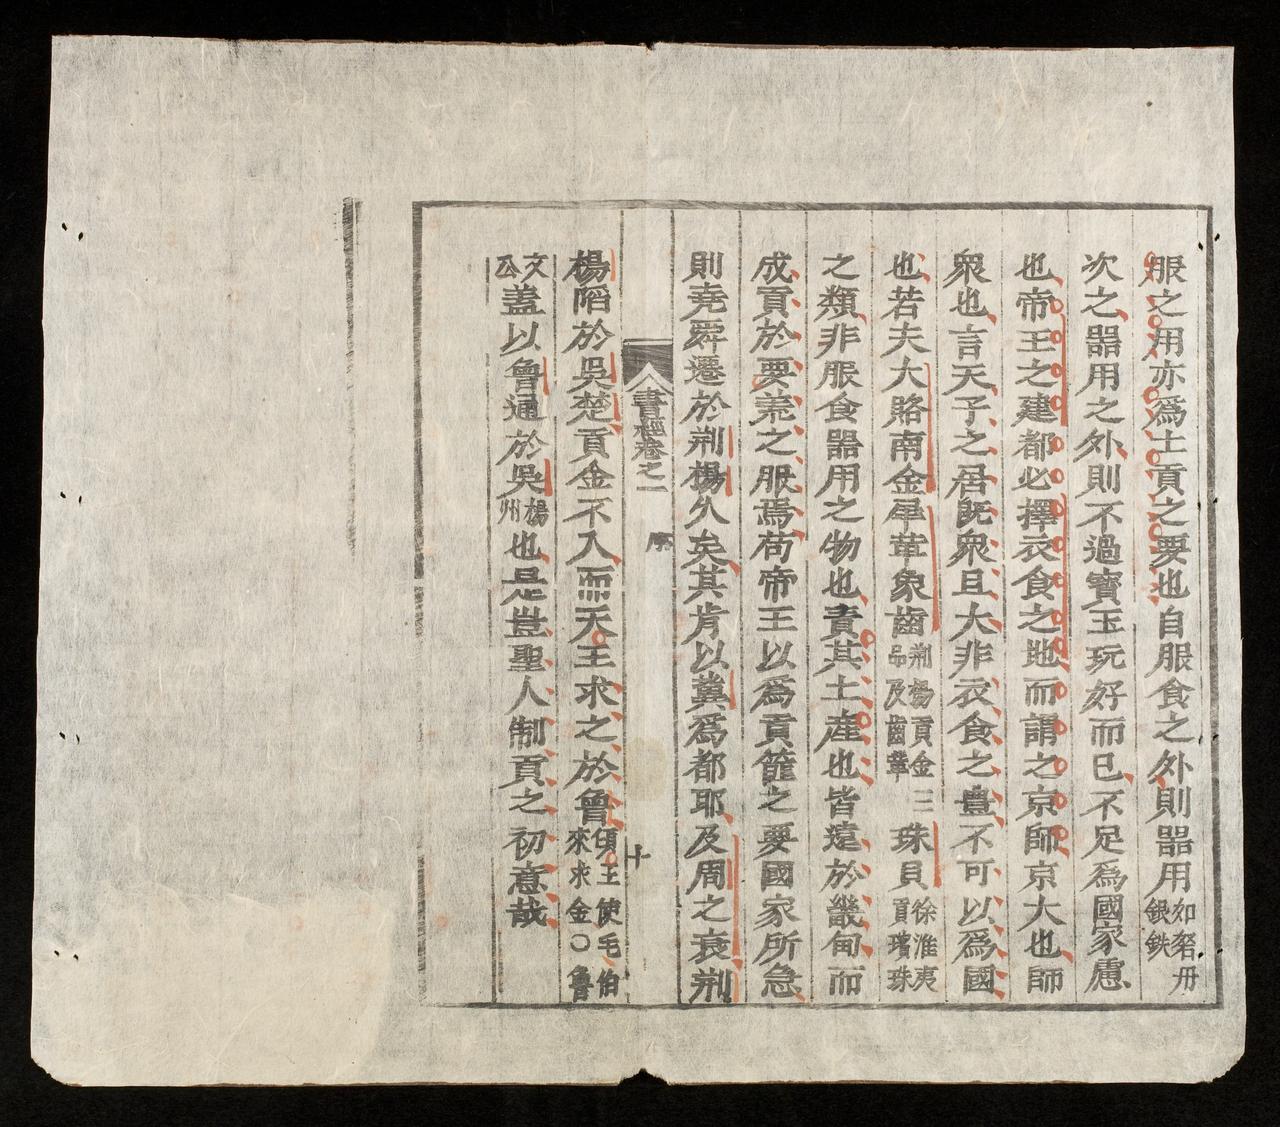 服之用亦爲土貢之要也自服食之外則器用如砮丹銀鉄
次之器用之外則不過寳玉玩好而已不足爲國家慮
也帝王之建都必擇衣食之地而謂之京師京大也師
衆也言天子之居旣衆且大非衣食之豊不可以爲國
也若夫大賂南金犀革象齒荆楊貢金三品及齒革珠貝徐淮夷貢蠙珠
之類非服食器用之物也責其土産也皆遠於畿甸而
成貢於要荒之服焉苟帝王以爲貢篚之要國家所急
則堯舜遷於荆楊久矣其肯以冀爲都耶及周之衰荆
書經卷之一
序
十
楊䧟於吳楚貢金不入而天王求之於魯頃王使毛伯來求金〇魯
文公盖以魯通於吳楊州也是豈聖人制貢之初意哉